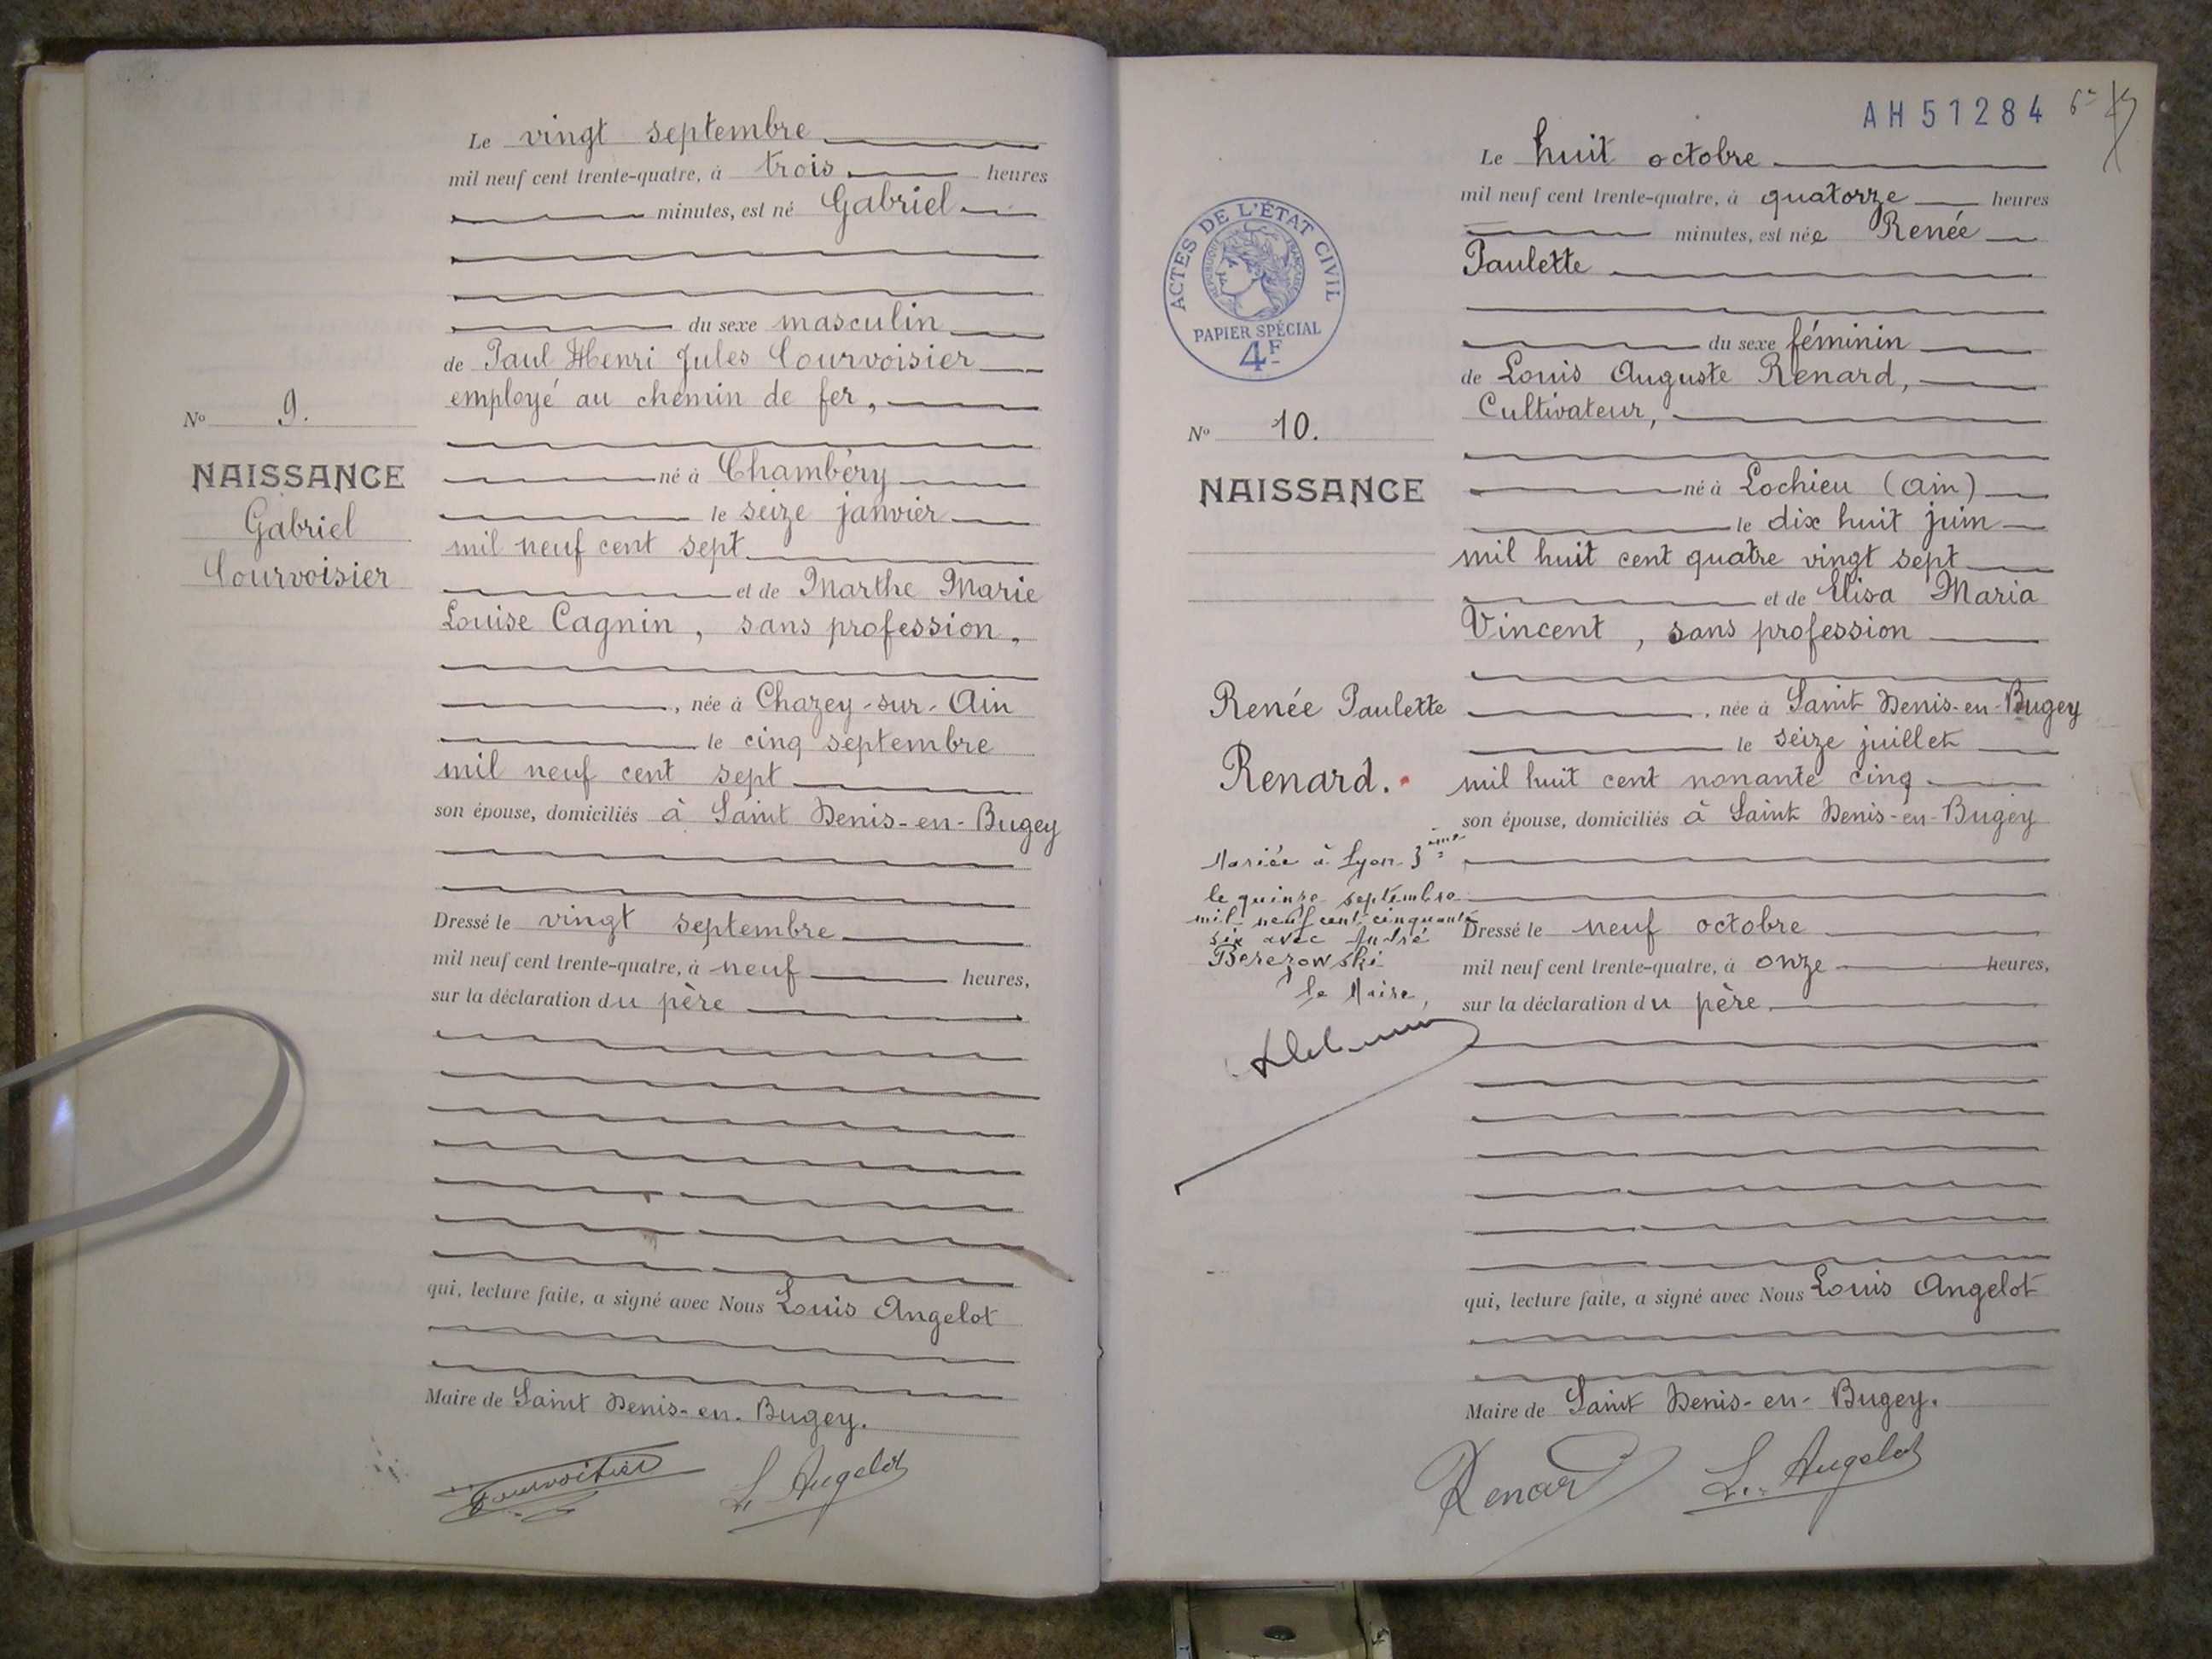 Le vingt septembre
mil neuf cent trente-quatre, à trois heures
minutes, est né Gabriel
du sexe masculin
de Paul Henri Jules Courvoisier
employé au chemin de fer,
né à Chambéry
le seize janvier
mil neuf cent sept
et de Marthe Marie
Louise Cagnin, sans profession,
, née à Chazey-sur-Ain
le cinq septembre
mil neuf cent sept
son épouse, domiciliés à Saint Denis-en-Bugey
Dressé le vingt septembre
mil neuf cent trente-quatre, à neuf heures,
sur la déclaration du père
qui, lecture faite, a signé avec Nous Louis Angelot
Maire de Saint Denis-en-Bugey.
Courvoisier L. Angelot
No 9.
NAISSANCE
Gabriel
Courvoisier
AH51284
Le huit octobre
mil neuf cent trente-quatre, à quatorze heures
minutes, est née Renée
Paulette
du sexe féminin
de Louis Auguste Renard,
Cultivateur,
né à Lochieu (Ain)
le dix huit juin
mil huit cent quatre vingt sept
et de Elisa Maria
Vincent, sans profession
, née à Saint Denis-en-Bugey
le seize juillet
mil huit cent nonante cinq
son épouse, domiciliés à Saint Denis-en-Bugey
Dressé le neuf octobre
mil neuf cent trente-quatre, à onze heures,
sur la déclaration du père,
qui, lecture faite, a signé avec Nous Louis Angelot
Maire de Saint Denis-en-Bugey.
Renard L. Angelot
ACTES DE L'ÉTAT CIVIL
RÉPUBLIQUE FRANÇAISE
PAPIER SPÉCIAL
4F
No 10.
NAISSANCE
Renée Paulette
Renard.
Mariée à Lyon 3ème
le quinze septembre
mil neuf cent cinquante
six avec André
Berezowski
Le Maire,